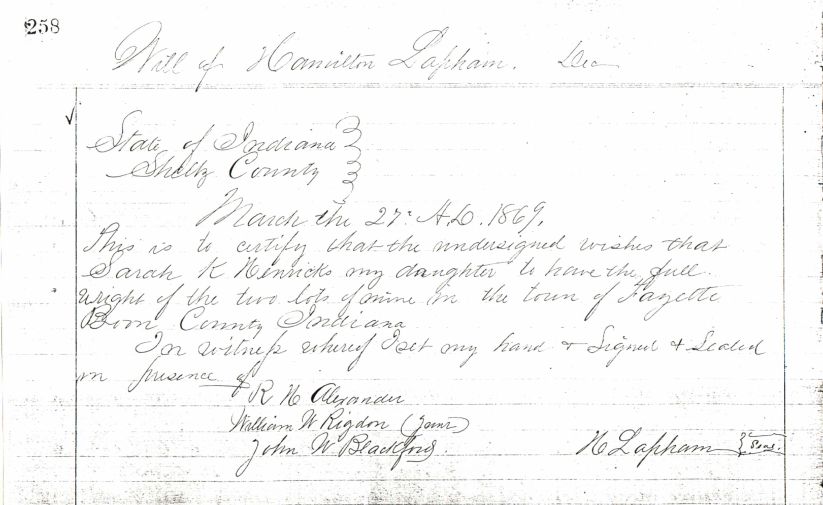 258
Will of Hamilton Lapham. Dec
State of Indiana
Shelby County
March the 27th A.D. 1869,
This is to certify that the undersigned wishes that
Sarah K Henricks my daughter to have the full
wright of the two lots of mine in the town of Fayette
Boon County Indiana
In witness whereof I set my hand & Signed & Sealed
in presence of
R H Alexander
William W Rigdon
John W Blackford.
H Lapham {Seal}